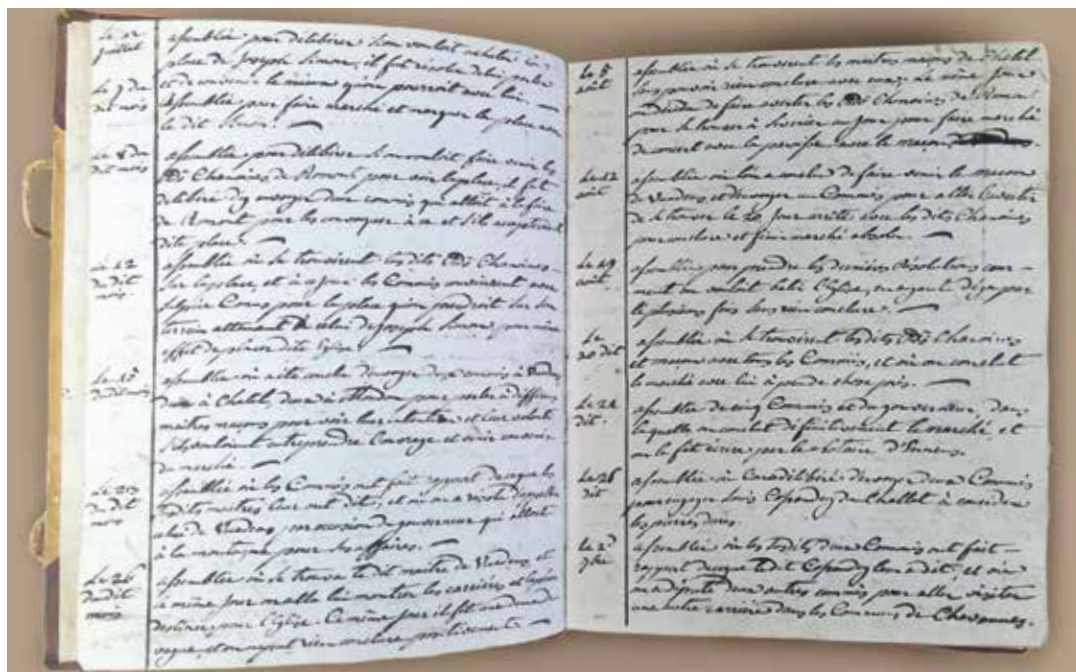 Le 2
Juillet
assemblée pour deliberer si on vouloit acheter la
place de Joseph Simon, il fut résolu de lui parler
et de convenir le mieux qu'on pourroit avec lui. —
Le 7 du
dit mois
assemblée pour faire marché et marquer la place avec
le dit Simon. —
Le 8 du
dit mois
assemblée pour délibérer si on vouloit faire venir les
Chanoines de Romont pour voir la place, il fut
délibéré d'y envoyer deux commis qui allat à la foire
de Romont pour les convoquer à
dite place. —
Le 12
du dit
mois.
assemblée où se trouvèrent les dits Chanoines —
sur la place, et à ce jour les Commis convinrent avec
pour la place qu'on prendroit sur son
terrain attenant à celui de Joseph Simon, pour même
effet de placer dite Eglise. —
Le 15
du dit mois
assemblée où a été conclu d'envoyer deux commis à
deux à Chatel, deux à pour parler à différens
maitres maçons pour voir leur intention et leur volonté
s'ils vouloient entreprendre l'ouvrage et venir
du marché. —
Le 20
du dit
mois
assemblée où les Commis ont fait rapport de ce que les
dits maitres leur ont dit, et où on a résolu
celui de du gouverneur qui alloit
à la montagne pour ses affaires. —
Le 26
du dit
mois
assemblée où se trouva le dit maitre de et
ce même jour on alla lui montrer les carrières et la place
destinée pour l'Eglise. Ce même jour il fut
et on ne put rien conclure positivement. —
Le 8
août
assemblée où se trouvèrent les maitres maçons de Chatel
sans pouvoir rien conclure avec eux. Le même jour
on décida de faire avertir les Chanoines de Romont
pour se trouver à un jour pour faire marché
de concert avec la paroisse avec le maçon
Le 12
août
assemblée où l'on a conclu de faire venir le maçon
de et d'envoyer un Commis pour aller l'avertir
de se trouver le 20, jour arrêté avec les dits Chanoines
pour conclure et finir marché absolu. —
Le 19
août.
assemblée pour prendre les dernières résolutions com-
ment on vouloit batir l'Eglise, en ayant déja parlé
plusieurs fois sans rien conclure. —
Le
20 dit
assemblée où se trouvèrent les dits Chanoines
et maçon avec tous les Commis, et où on conclut
le marché avec lui à peu de chose près. —
Le 24
dit.
assemblée de cinq Commis et du gouverneur, dans
laquelle on conclut définitivement le marché et
on le fit écrire par le Notaire
Le 26
dit
assemblée où l'on a délibéré d'envoyer deux Commis
pour engager de Chattel à
les pierres dures.
Le 2
7bre
assemblée où les dits deux Commis ont fait —
rapport de ce que le dit leur a dit, et où
on adjoute deux autres commis pour aller visiter
une autre carrière dans les Communs de Chavannes.